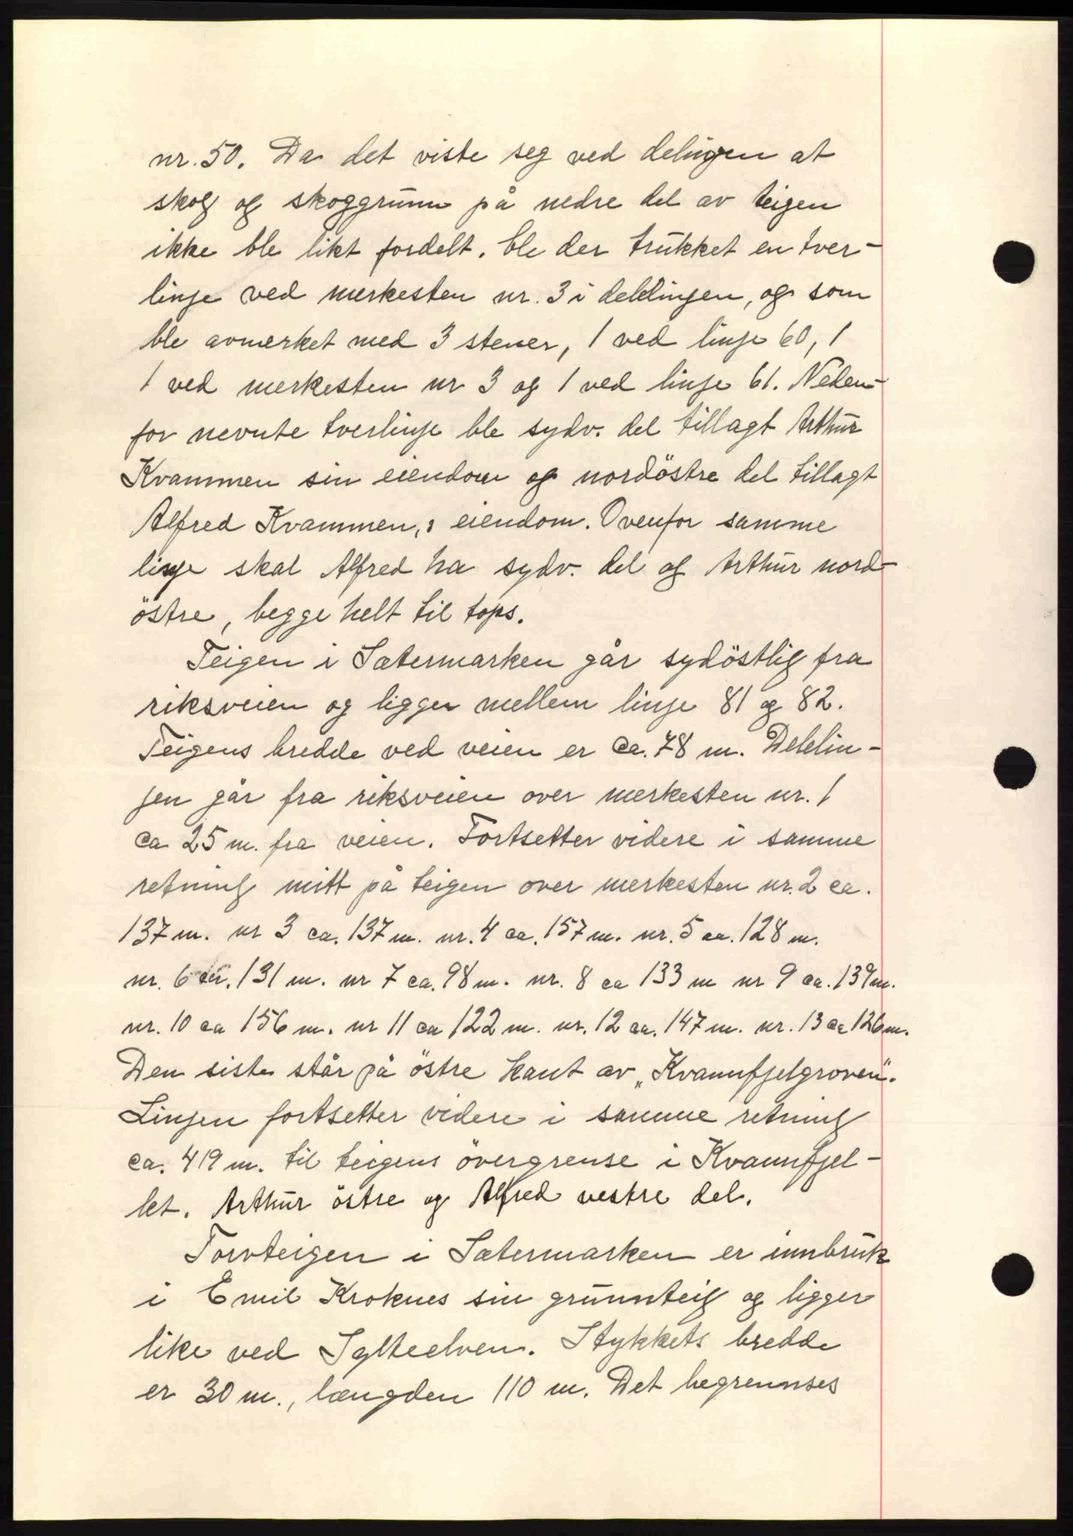 nr. 50. Da det viste seg ved delingen at
skog og skoggrunn på nedre del av teigen
ikke ble likt fordelt. ble der trukket en tver-
linje ved merkesten nr. 3 i delelinjen, og som
ble avmerket med 3 stener, 1 ved linje 60, 1
1 ved merkesten nr 3 og 1 ved linje 61. Neden-
for nevnte tverlinje ble sydv. del tillagt Arthur
Kvammen sin eiendom og nordöstre del tillagt
Alfred Kvammen,s eiendom. Ovenfor samme
linje skal Alfred ha sydv. del og Arthur nord-
östre, begge helt til tops.
Teigen i Sætermarken går sydöstlig fra
riksveien og ligger mellem linje 81 og 82.
Teigens bredde ved veien er ca. 78 m. Delelin-
jen går fra riksveien over merkesten nr. 1
ca 25 m. fra veien. Fortsetter videre i samme
retning mitt på teigen over merkesten nr. 2 ca.
137 m. nr 3 ca. 137 m. nr. 4 ca. 157 m. nr. 5 ca. 128 m.
nr. 6 ca. 131 m. nr 7 ca. 98 m. nr. 8 ca 133 m nr 9 ca. 139 m.
nr. 10 ca 156 m. nr 11 ca 122 m. nr. 12 ca. 147 m. nr. 13 ca 126 m.
Den siste står på östre kant av „Kvannfjelgroven".
Linjen fortsetter videre i samme retning
ca. 419 m. til teigens övergrense i Kvannfjel-
let. Arthur östre og Alfred vestre del.
Torvteigen i Sætermarken er innbruk
i Emil Kroknes sin grunnteig og ligger
like ved Sylteelven. Stykkets bredde
er 30 m., længden 110 m. Det begrennses